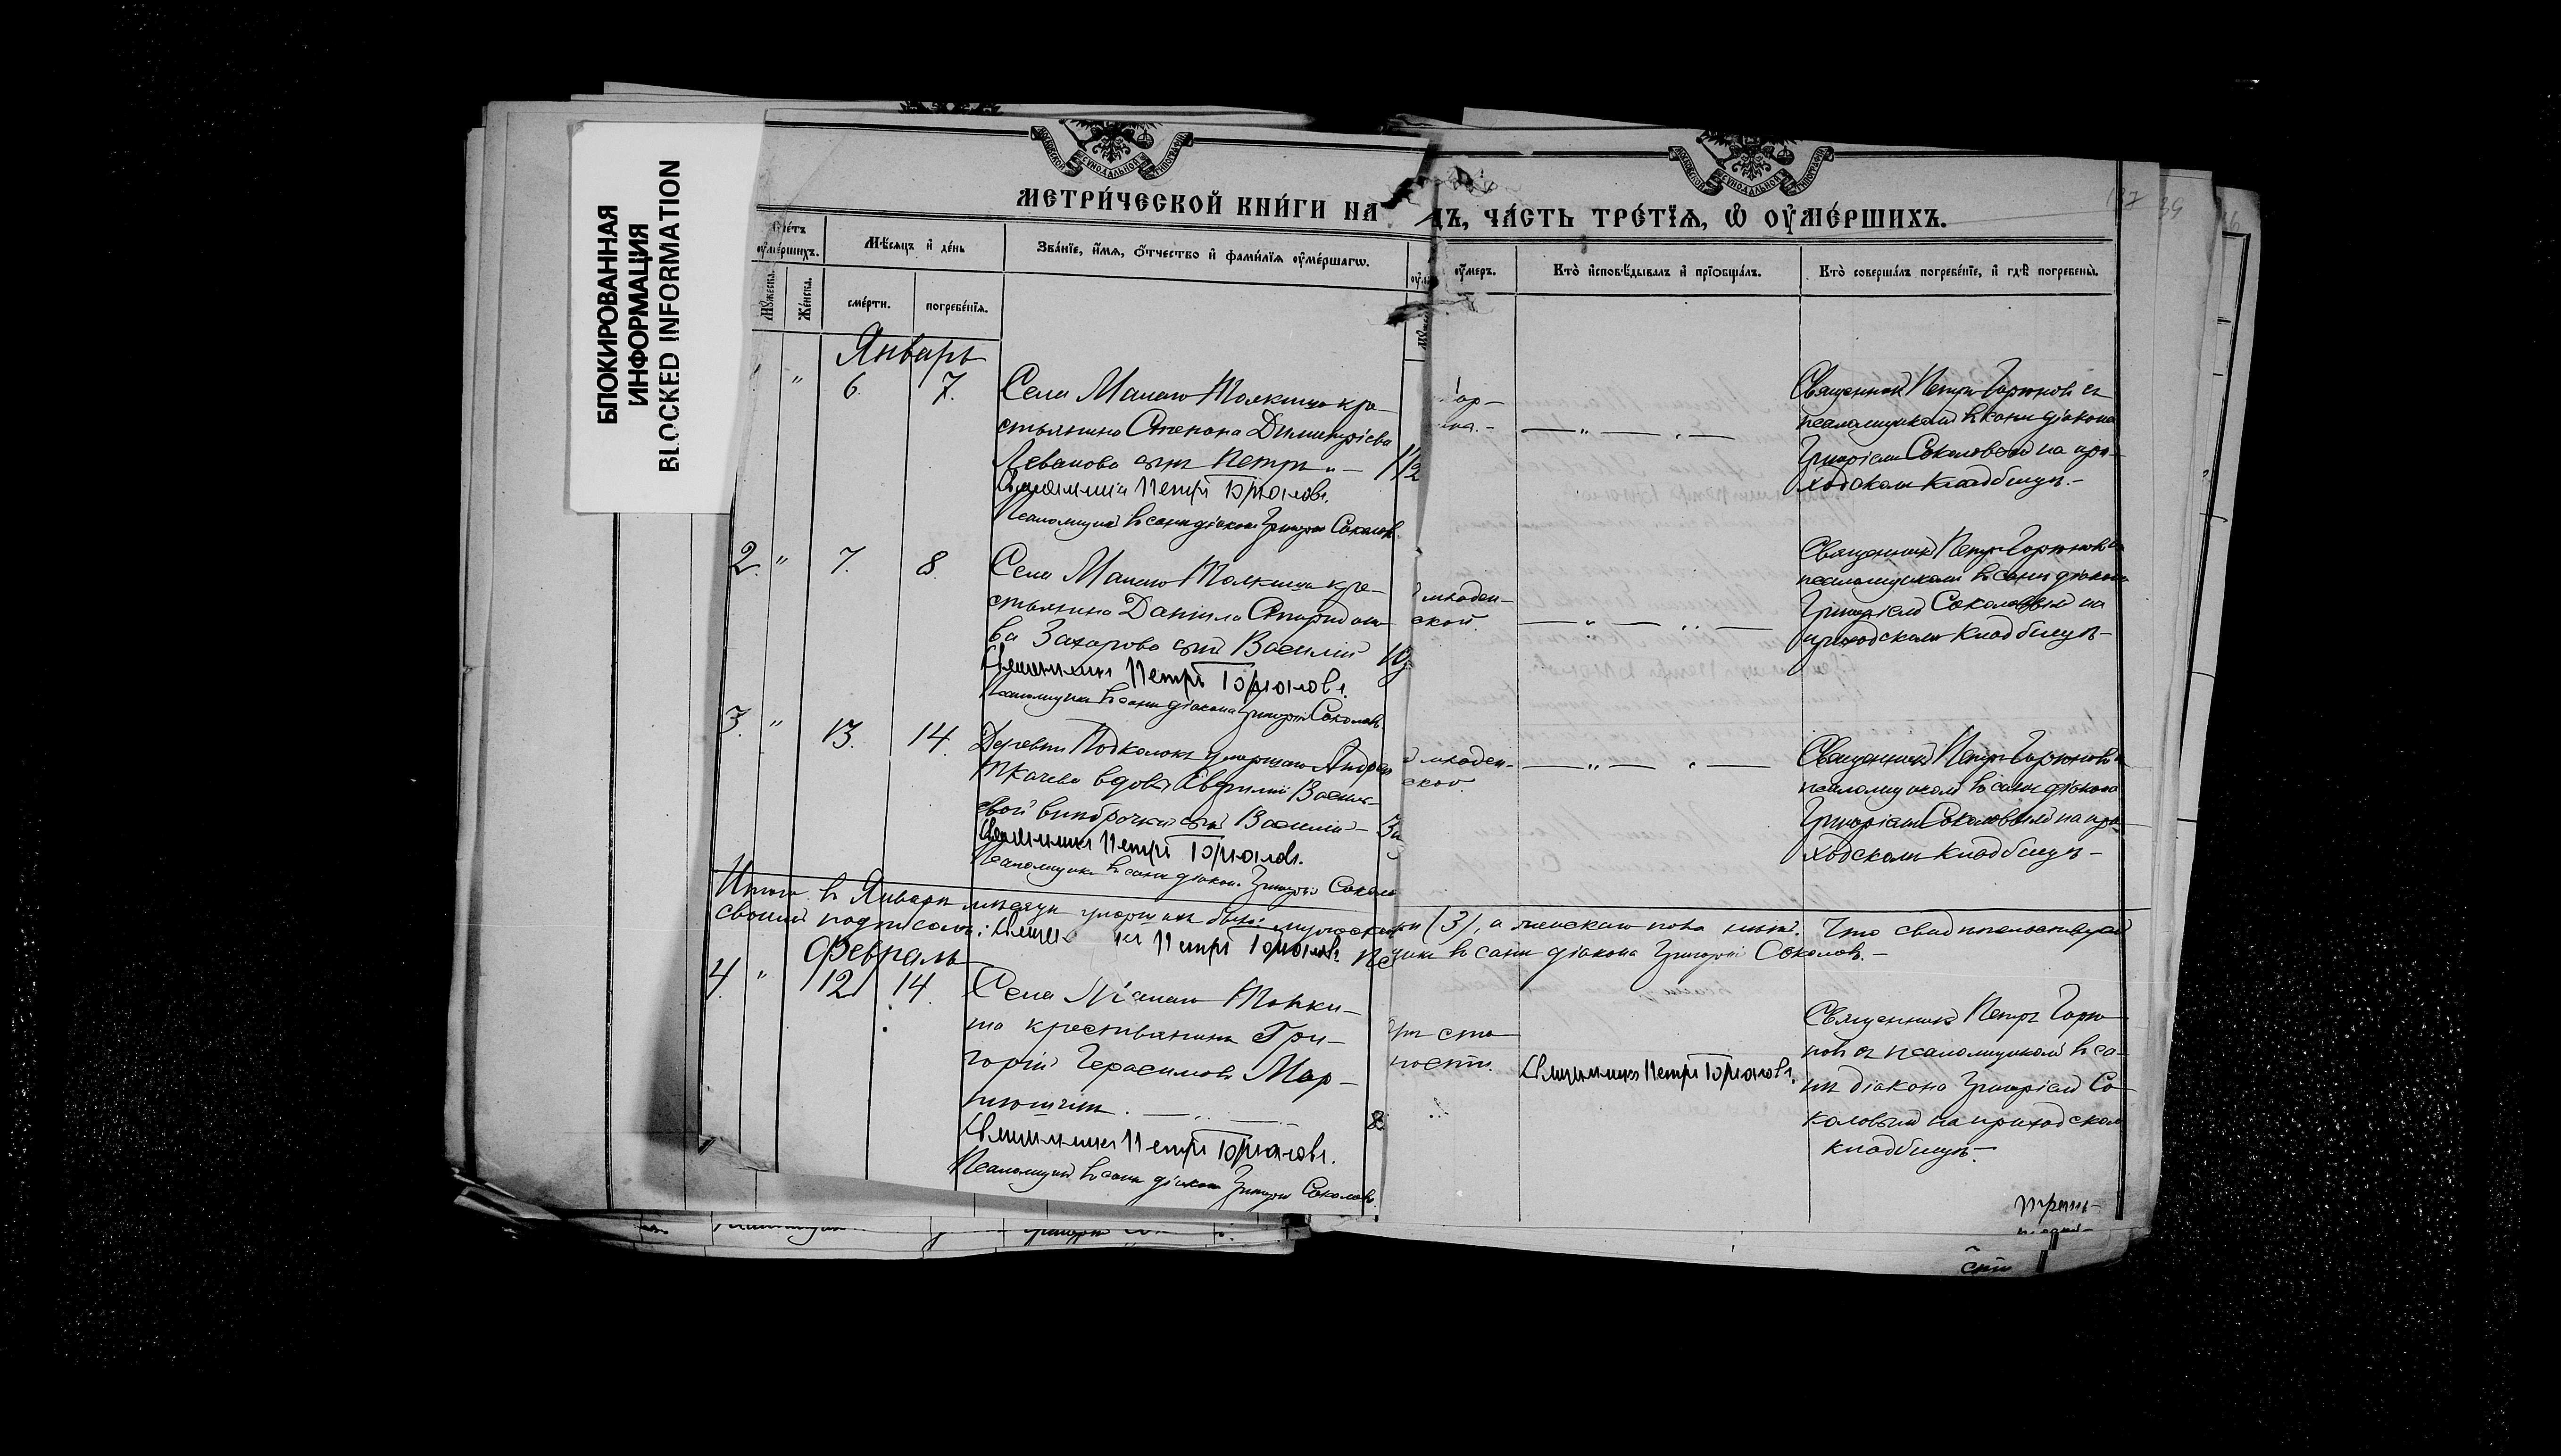 БЛОКИРОВАННАЯ
ИНФОРМАЦИЯ
BLOCKED INFORMATION
МЕТРИ́ЧЕСКОЙ КНИ́ГИ НА
ДЪ, ЧА́СТЬ ТРЕ́ТЇѦ, Ѡ҆ ОУ҆МЕ́РШИХЪ.
Сче́тъ оу҆ме́ршихъ.
Мѣ́сѧцъ и҆ де́нь
Зва́нїе, и҆́мѧ, ѻ҆́тчество и҆ фами́лїѧ оу҆ме́ршагѡ.
оу҆́меръ.
Кто̀ и҆сповѣ́дывалъ и҆ прїѡбща́лъ.
Кто̀ соверша́лъ погребе́нїе, и҆ гдѣ̀ погребены̀.
Мꙋ́жеска.
Же́нска.
сме́рти.
погребе́нїѧ.
Январь
" 6. 7. Села Малаго Толкиша кре-
стьянина Степана Димитріева
Леванова сынъ Петръ " —
Священникъ Петръ Горюновъ.
Псаломщикъ въ санѣ діакона Григорій Соколовъ.
Священникъ Петръ Горюновъ съ
псаломщикомъ въ санѣ діакона
Григоріемъ Соколовымъ на при-
ходскомъ кладбищѣ.-
2. " 7. 8. Села Малаго Толкиша кре-
стьянина Даніила Спиридоно-
ва Захарова сынъ Василій
Священникъ Петръ Горюновъ.
Псаломщикъ въ санѣ діакона Григорій Соколовъ.
младен-
ской.
Священникъ Петръ Горюновъ съ
псаломщикомъ въ санѣ діакона
Григоріемъ Соколовымъ на
приходскомъ кладбищѣ-
3. " 13. 14. Деревни Подкалокъ умершаго Андрея
Ткачева вдовы Василь-
евой сынъ Василій —
Священникъ Петръ Горюновъ.
Псаломщикъ въ санѣ діакона Григорій Соколовъ
младен-
ской.
Священникъ Петръ Горюновъ съ
псаломщикомъ въ санѣ діакона
Григоріемъ Соколовымъ на при-
ходскомъ кладбищѣ —
Итого въ Январѣ мѣсяцѣ умершихъ было: мужеска три (3), а женскаго пола нѣтъ. Что свидѣтельствуемъ
своимъ подписомъ: Священникъ Петръ Горюновъ. въ санѣ діакона Григорій Соколовъ.-
Февраль
4. " 12 14. Села Малаго Толки-
ша крестьянинъ Гри-
горій Герасимовъ Мар-
тюшинъ. —
Священникъ Петръ Горюновъ.
Псаломщикъ въ санѣ діакона Григорій Соколовъ.
Священникъ Петръ Горюновъ.
Священникъ Петръ Горю-
новъ съ псаломщикомъ въ са-
нѣ діакона Григоріемъ Со-
коловымъ на приходскомъ
кладбищѣ-